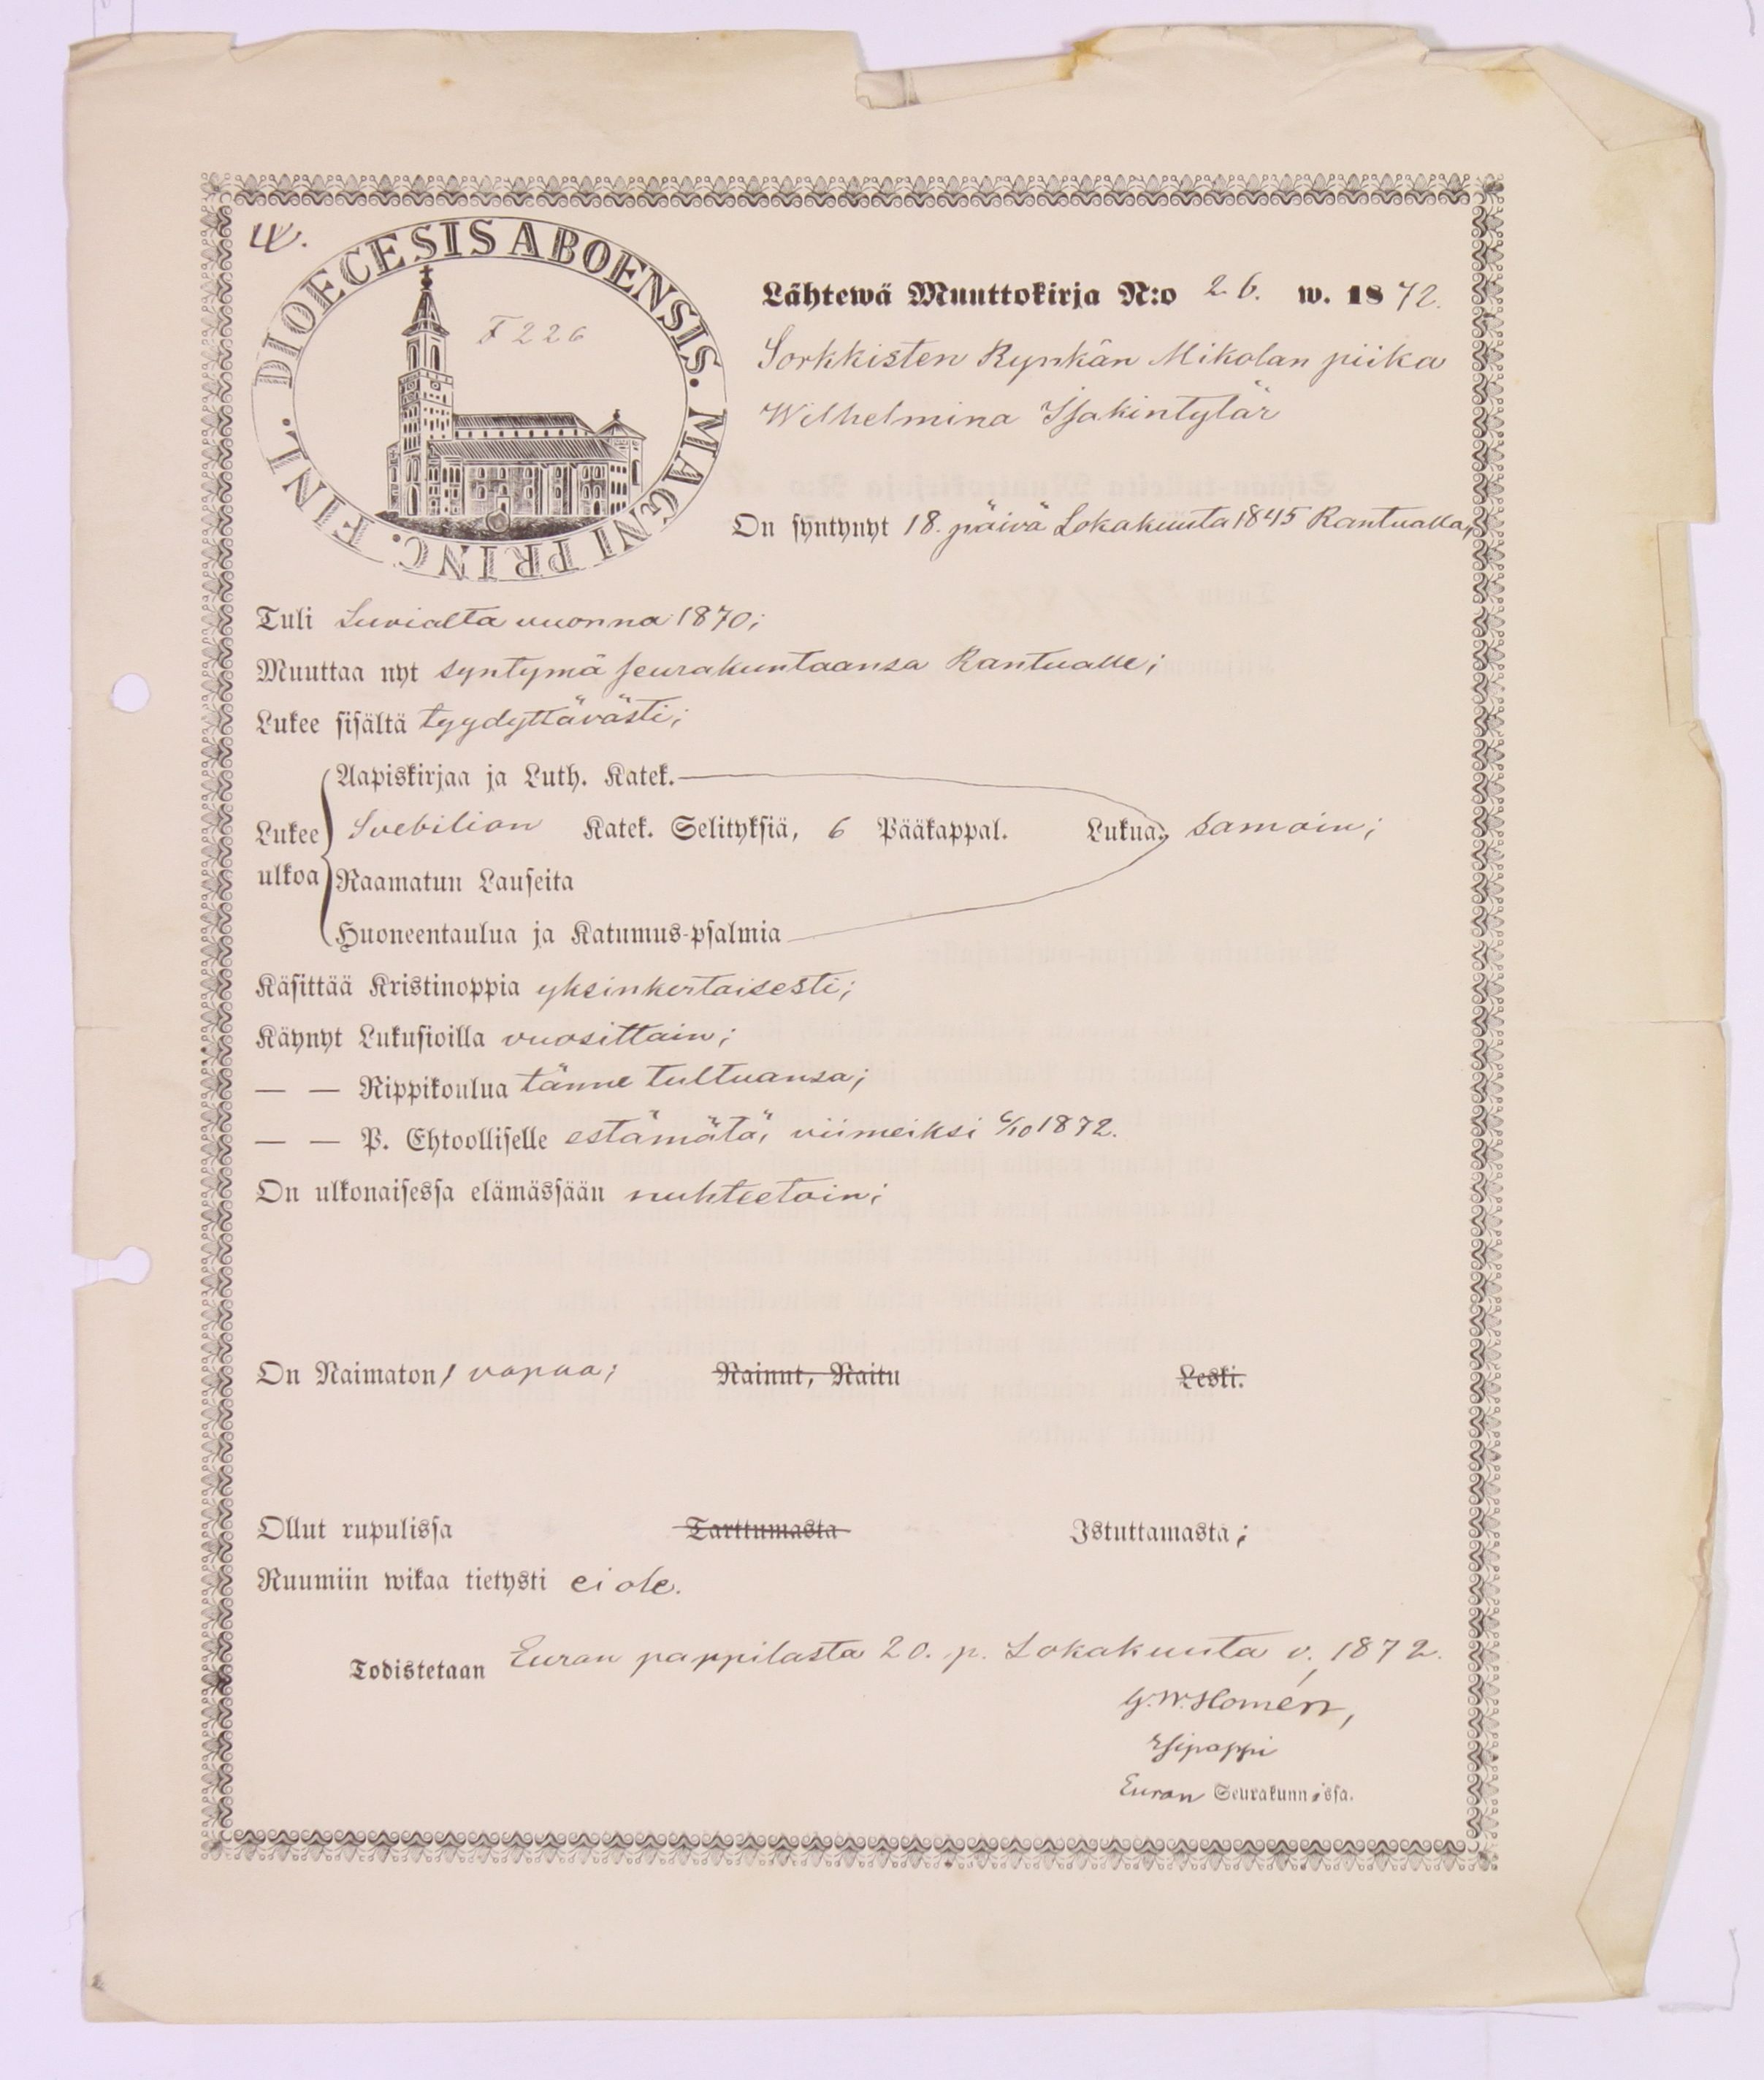 W.
DIOECESIS ABOENSIS. MAGNI PRINC. FINL.
F 226
Lähtewä Muuttokirja N:o 26. w. 1872.
Sorkkisten Rynkän Mikolan piika
Wilhelmina Isakintytär
On syntynyt 18. päivä Lokakuuta 1845 Rantualla;
Tuli Luvialta vuonna 1870;
Muuttaa nyt syntymä seurakuntaansa Rantualle;
Lukee sisältä tyydyttävästi;
Aapiskirjaa ja Luth. Katek.
Lukee Svebilion Katek. Selityksiä, 6 Pääkappal. Lukua, samoin;
ulkoa Raamatun Lauseita
Huoneentaulua ja Katumus-psalmia
Käsittää Kristinoppia yksinkertaisesti;
Käynyt Lukusioilla vuosittain;
— — Rippikoulua tänne tultuansa;
— — P. Ehtoolliselle estämätä, viimeiksi 6/10 1872.
On ulkonaisessa elämässään nuhteetoin;
On Naimaton, vapaa; Nainut, Naitu Leski.
Ollut rupulissa Tarttumasta Istuttamasta;
Ruumiin wikaa tietysti ei ole.
Todistetaan Euran pappilasta 20. p. Lokakuuta v. 1872.
G. W. Homén,
Esipappi
Euran Seurakunnissa.